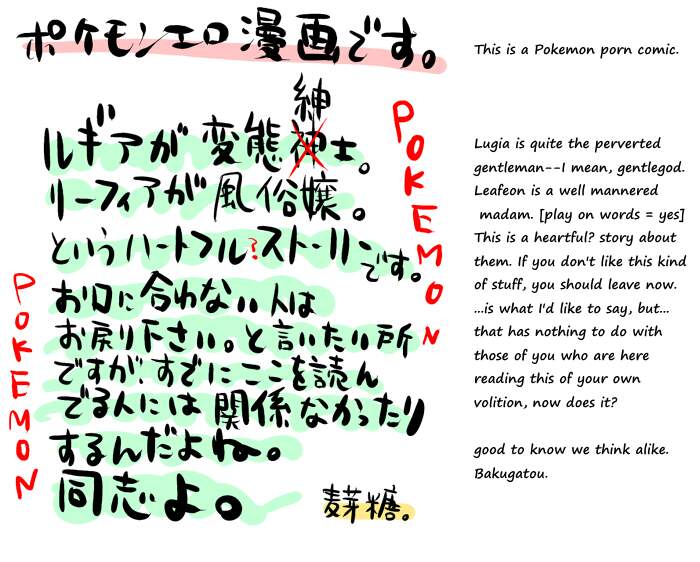 ポケモンエロ漫画です。
紳
ルギアが変態神士。
リーフィアが風俗嬢。
というハートフル?ストーリーです。
お口に合わない人は
お戻り下さい。と言いたい所
ですが、すでにここを読ん
でる人には関係なかったり
するんだよね。
同志よ。
麦芽糖。
POKEMON
POKEMON
This is a Pokemon porn comic.
Lugia is quite the perverted
gentleman--I mean, gentlegod.
Leafeon is a well mannered
madam. [play on words = yes]
This is a heartful? story about
them. If you don't like this kind
of stuff, you should leave now.
...is what I'd like to say, but...
that has nothing to do with
those of you who are here
reading this of your own
volition, now does it?
good to know we think alike.
Bakugatou.